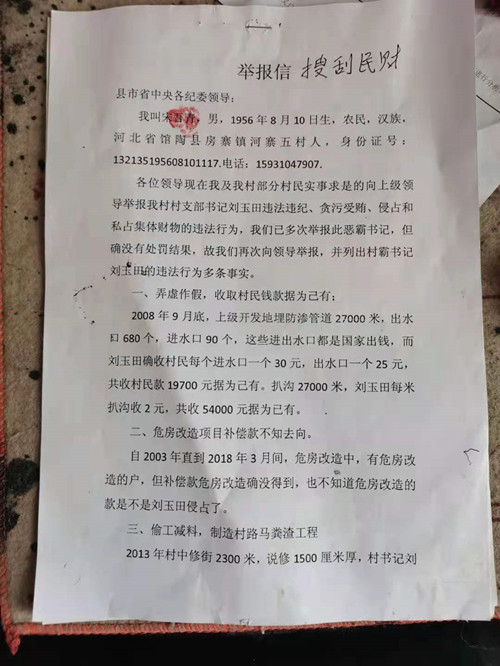 举报信 搜刮民财
县市省中央各纪委领导:
我叫宋 , 男, 1956 年 8 月 10 日生, 农民, 汉族,
河北省馆陶县房寨镇河寨五村人, 身份证号:
132135195608101117.电话: 15931047907.
各位领导现在我及我村部分村民实事求是的向上级领
导举报我村村支部书记刘玉田违法违纪、贪污受贿、侵占和
私占集体财物的违法行为, 我们已多次举报此恶霸书记, 但
确没有处罚结果, 故我们再次向领导举报, 并列出村霸书记
刘玉田的违法行为多条事实。
一、弄虚作假, 收取村民钱款据为己有;
2008 年 9 月底, 上级开发地埋防渗管道 27000 米, 出水
口 680 个, 进水口 90 个, 这些进出水口都是国家出钱, 而
刘玉田确收村民每个进水口一个 30 元, 出水口一个 25 元,
共收村民款 19700 元据为己有。扒沟 27000 米, 刘玉田每米
扒沟收 2 元, 共收 54000 元据为已有。
二、危房改造项目补偿款不知去向。
自 2003 年直到 2018 年 3 月间, 危房改造中, 有危房改
造的户, 但补偿款危房改造确没得到, 也不知道危房改造的
款是不是刘玉田侵占了。
三、偷工减料, 制造村路马粪渣工程
2013 年村中修街 2300 米, 说修 1500 厘米厚, 村书记刘